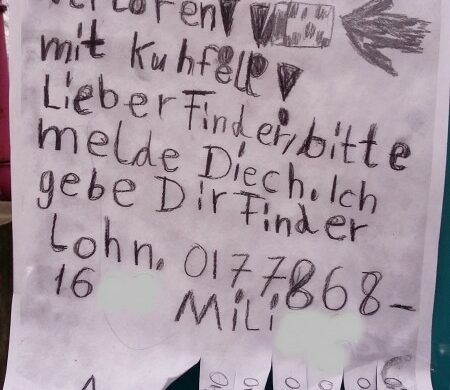 verloren!!
mit Kuhfell!
Lieber Finder, bitte
melde Diech. Ich
gebe Dir Finder
Lohn. 0177868-
16
Mili